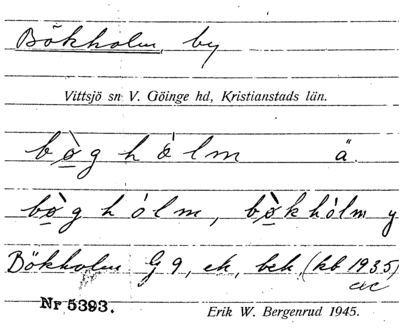 Bökholm, by
Vittsjö sn V. Göinge hd, Kristianstads län.
bø̀ghólm ä
bø̀ghólm, bø̀khólm y
Bökholm G 9, ek, bek, (kb 1935)
Nr 5393. Erik W. Bergenrud 1945.